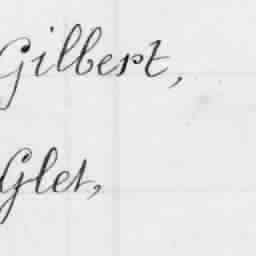 Gilbert,
Glet,